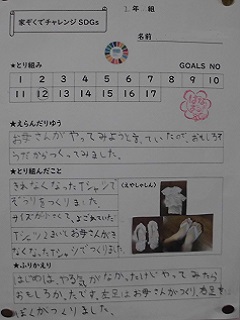 1.年 組
家ぞくでチャレンジSDGs
名前
★とり組み GOALS NO
1 2 3 4 5 6 7 8 9 10
11 12 13 14 15 16 17
★えらんだりゆう
お母さんがやってみようと言っていたのが、おもしろそ
うだからつくってみました。
★とり組んだこと
きれなくなったTシャツで
ぞうりをつくりました。
サイズが小さくて、よごれていた
Tシャツとまいとお母さんがき
なくなったTシャツでつくりました。
(えやしゃしん)
★ふりかえり
はじめは、やる気がなかったけどやってみたら
おもしろかったです。左足はお母さんがつくり、右足を
ぼくがつくりました。